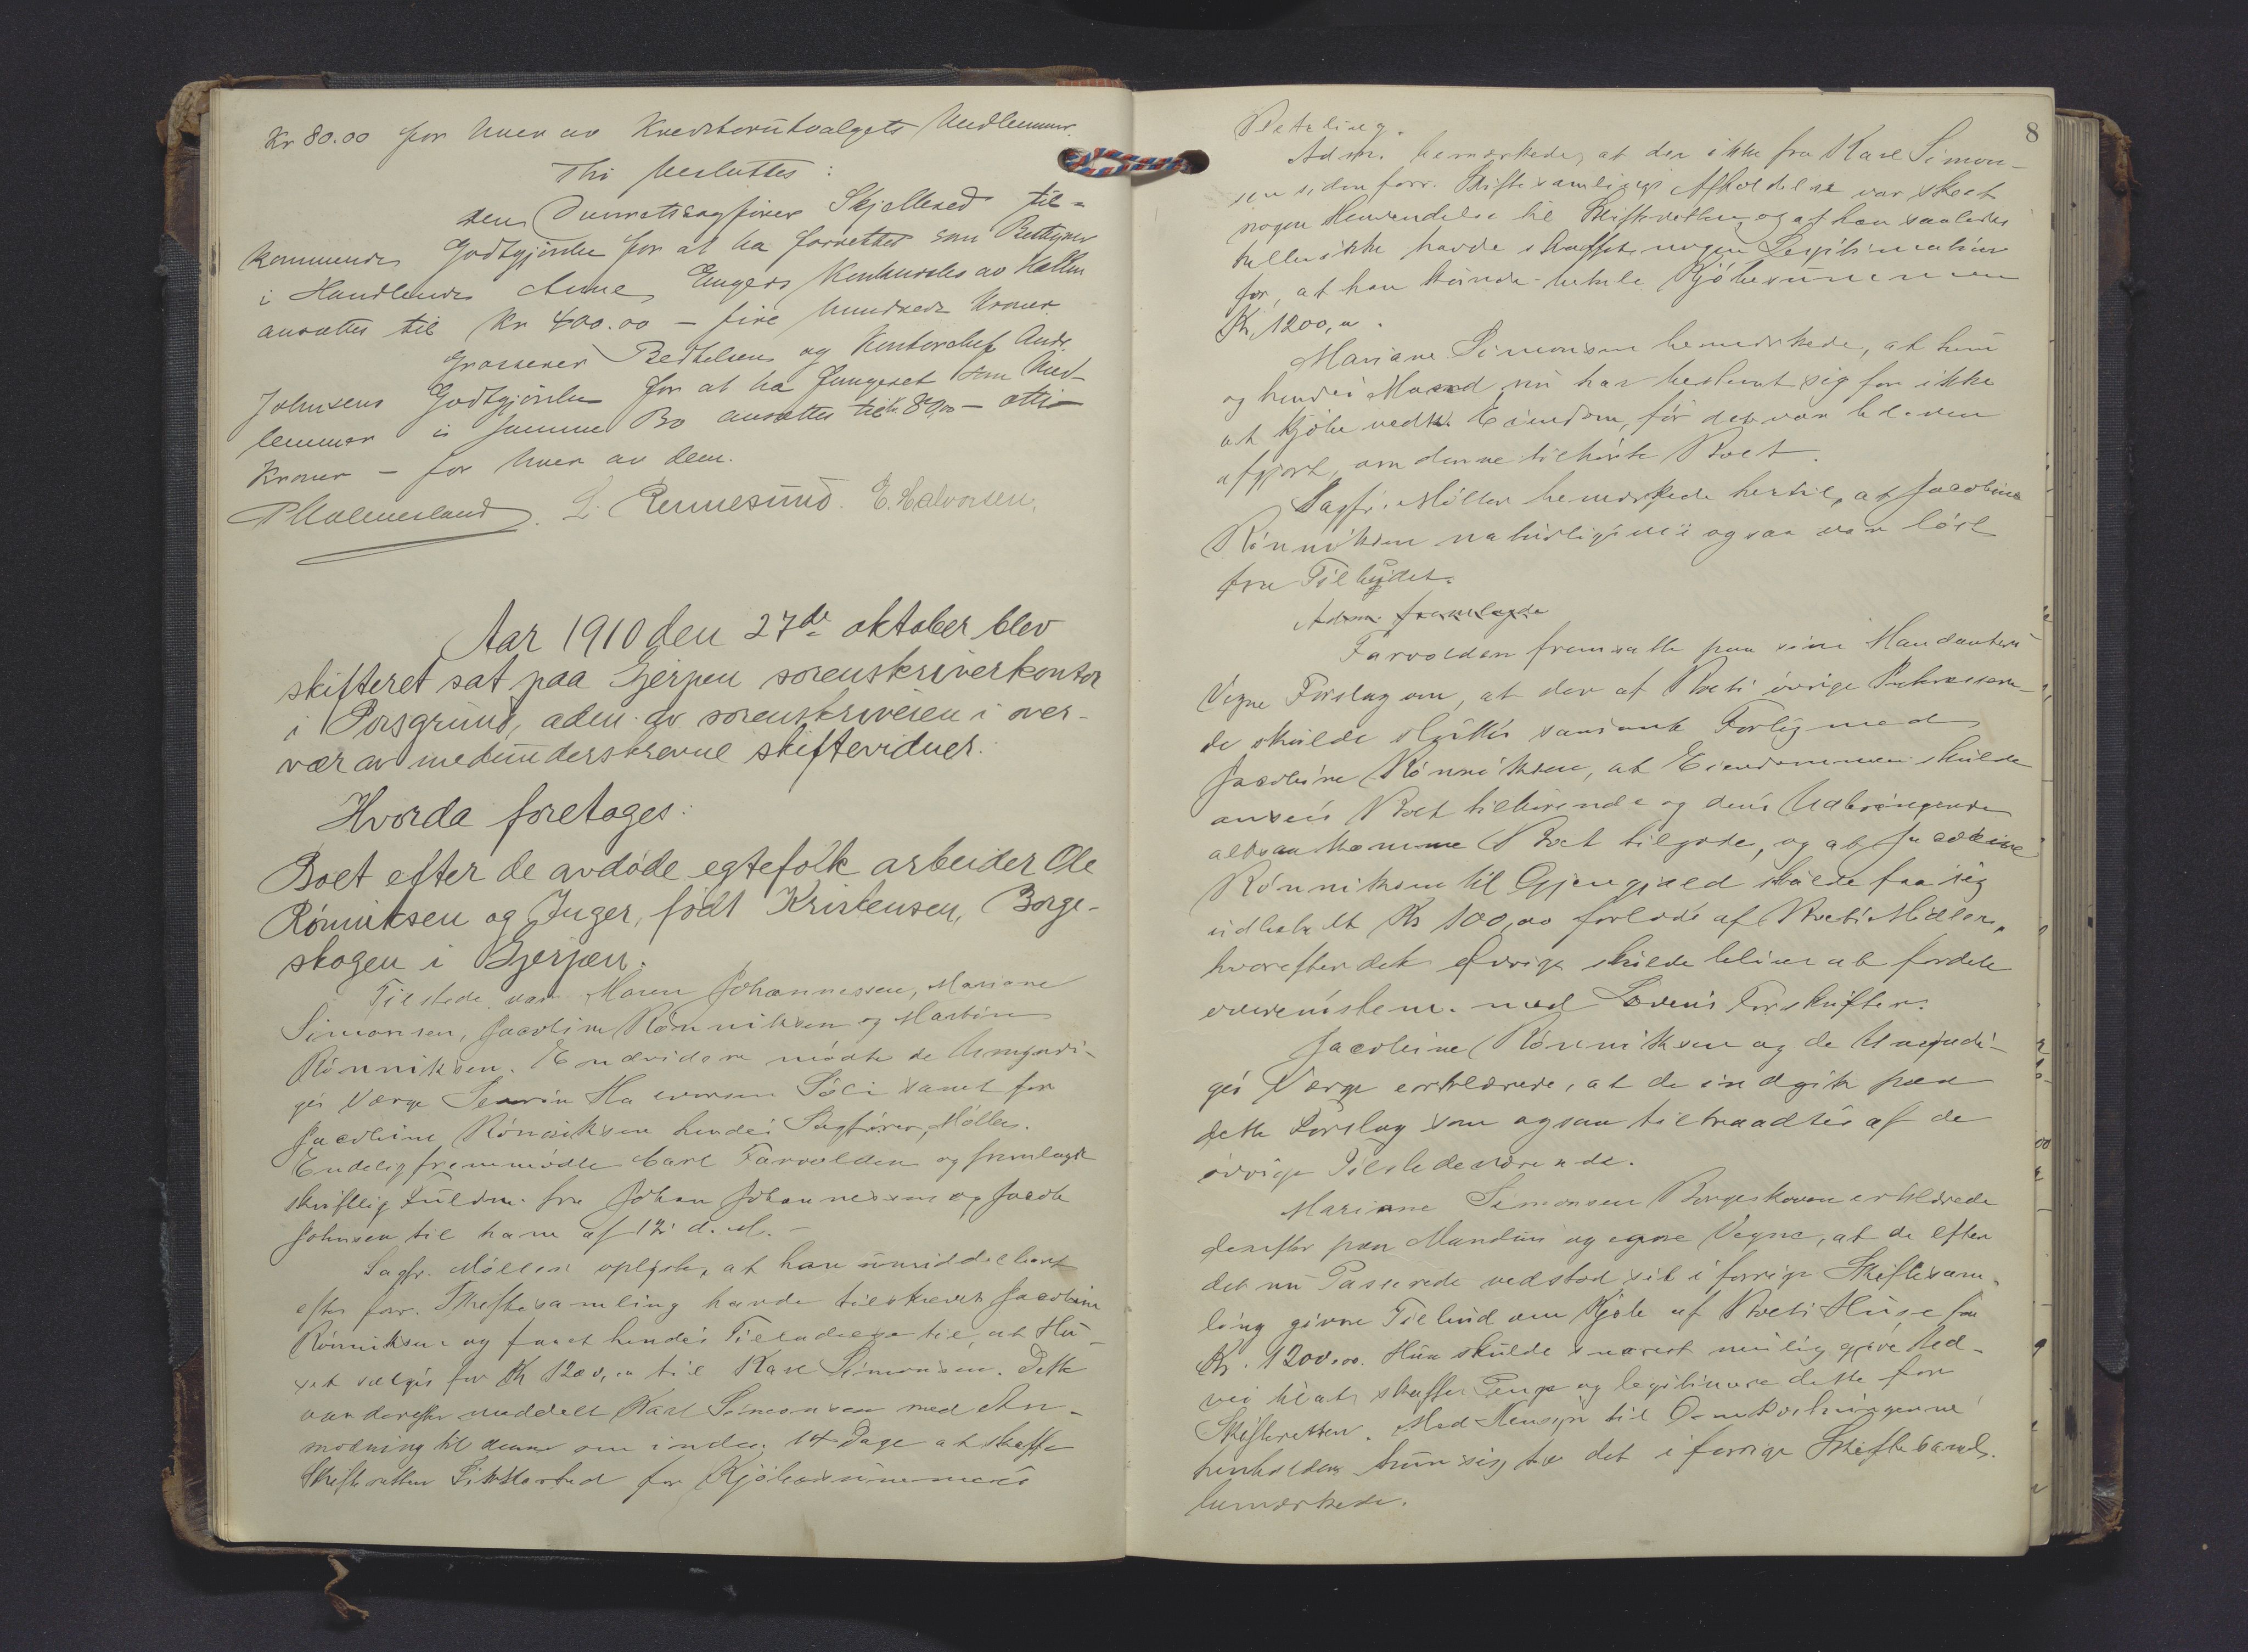 Kr 80.00 for hver av Kreditorutvalgets Medlemmer.
Thi besluttes:
den Overretssagfører Skjelbred til-
kommende Godtgjørelse for at ha forrettet som Bestyrer
i Handlende Anne Engers Konkursbo av Hallen
ansættes til Kr 400.00 – fire hundrede Kroner.
Grosserer Berthelsen og Kontorchef Andr.
Johnsens Godtgjørelse for at ha fungeret som Med-
lemmer i samme Bo ansættes til kr 80,00 – otti
Kroner – for hver av dem.
L. Rennesund. E. Halvorsen.
Aar 1910 den 27de oktober blev
skifteret sat paa Gjerpen sorenskriverkontor
i Porsgrund, adm. av sorenskriveren i over-
vær av medunderskrevne skiftevidner.
Hvorda foretoges:
Boet efter de avdøde egtefolk arbeider Ole
Rønniksen og Inger, født Kristensen, Borge-
skogen i Gjerpen.
Tilstede var Maren Johannessen, Mariane
Simonsen, Jacobine Rønniksen og Martin
Rønniksen. Endvidere mødte de Umyndi-
ges Værge Severin Halvorsen Søli samt for
Jacobine Rønniksen hendes Sagfører, Møller.
Endelig fremmødte Carl Farvolden og fremlagde
skriftlig Fuldm. fra Johan Johannessen og Jacob
Johnsen til ham af 12 d. M. –
Sagfr. Møller oplyste, at han umiddelbart
efter forr. Skiftesamling havde tilskrevet Jacobine
Rønniksen og faaet hendes Tilladelse til, at Hu-
set sælges for Kr 1200,00 til Karl Simonsen. Dette
var derefter meddelt Karl Simonsen med An-
modning til denne om inden 14 Dage at skaffe
Skifteretten Sikkerhed for Kjøbesummens
8
Betaling.
Adm. bemærkede, at der ikke fra Karl Simon-
sen siden forr. Skiftesamlings Afholdelse var skeet
nogen Henvendelse til Skifteretten, og at han saaledes
heller ikke havde skaffet nogen Legitimation
for, at han kunde betale Kjøbesummen
Kr. 1200,00.
Mariane Simonsen bemærkede, at hun
og hendes Mand nu har bestemt sig for ikke
at kjøbe vedk. Eiendom, før det var bleven
afgjort, om denne tilhørte Boet.
Sagfr. Møller bemærkede hertil, at Jacobine
Rønniksen naturligvis ogsaa var løst
fra Tilbudet.
Adm. fremlagde
Farvolden fremsatte paa sine Mandanters
Vegne Forslag om, at der af Boets øvrige Interessere-
de skulde sluttes saadant Forlig med
Jacobine Rønniksen, at Eiendommen skulde
ansees Boet tilhørende og dens Udbringende
altsaa komme Boet tilgode, og at Jacobine
Rønniksen til Gjengjæld skulde faa sig
udbetalt Kr 100,00 forlods af Boets Midler,
hvorefter det Øvrige skulde blive at fordele
overenstem. med Lovens Forskrifter.
Jacobine Rønniksen og de Umyndi-
ges Værge erklærede, at de indgik paa
dette Forslag som ogsaa tiltraadtes af de
øvrige Tilstedeværende.
Mariane Simonsen Borgeskoven erklærede
derefter paa Mandens og egne Vegne, at de efter
det nu Passerede vedstod sit i forrige Skiftesam-
ling givne Tilbud om Kjøb af Boets Huse for
Kr. 1200.00. Hun skulde snarest mulig gjøre Ud-
vei til at skaffe Penge og legitimere dette for
Skifteretten. Med Hensyn til Omkostningerne
henholder hun sig til det i forrige Skiftesaml.
bemærkede.